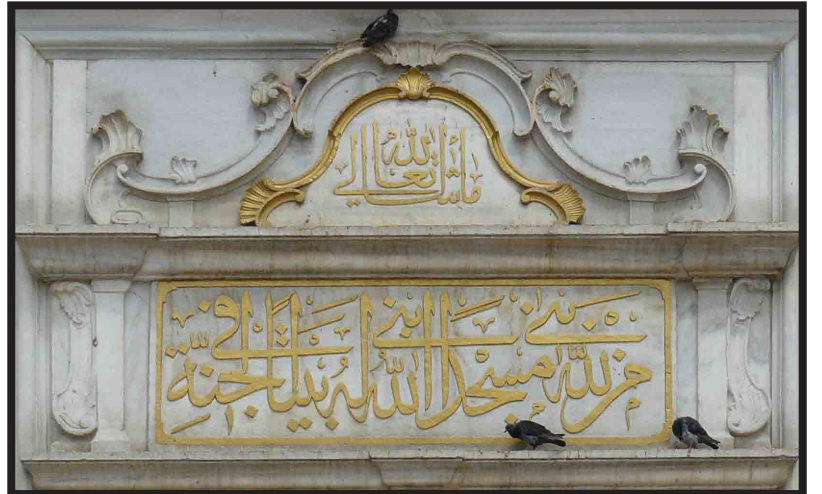 ما شاء الله تعالى
من بنى لله مسجدا بنى الله له بيتا في الجنة